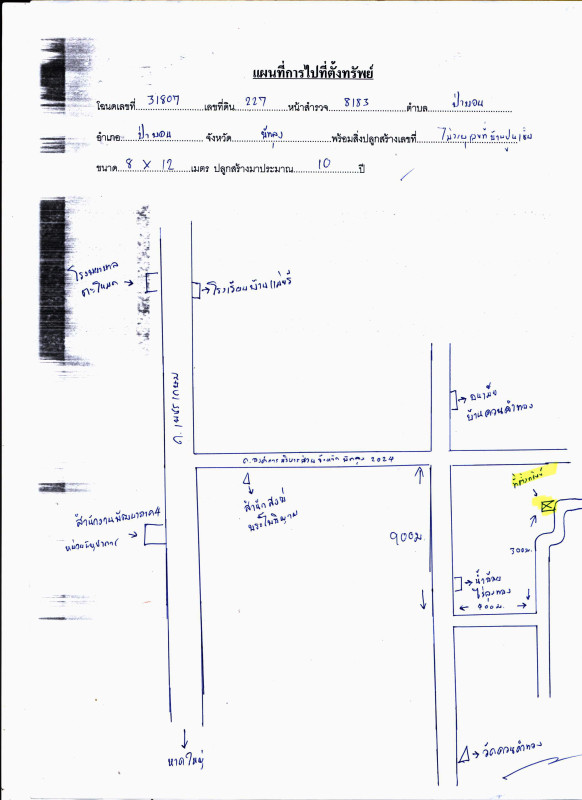 แผนที่การไปที่ตั้งทรัพย์
โฉนดเลขที่ 31807 เลขที่ดิน 227 หน้าสำรวจ 8183 ตำบล ป่าบอน
อำเภอ ป่าบอน จังหวัด พัทลุง พร้อมสิ่งปลูกสร้างเลขที่ ไม่ระบุเลขที่
ขนาด 8 X 12 เมตร ปลูกสร้างมาประมาณ 10 ปี
โรงพยาบาล
ตะโหมด
โรงเรียนบ้านแม่ขรี
ถ.เพชรเกษม
อนามัย
บ้านควนคำทอง
ถ.องค์การบริหารส่วนจังหวัด พัทลุง 2024
ที่ตั้งทรัพย์
สำนักสงฆ์
สำนักงานพัฒนาภาค4
900ม.
300ม.
400ม.
หาดใหญ่
วัดควนคำทอง